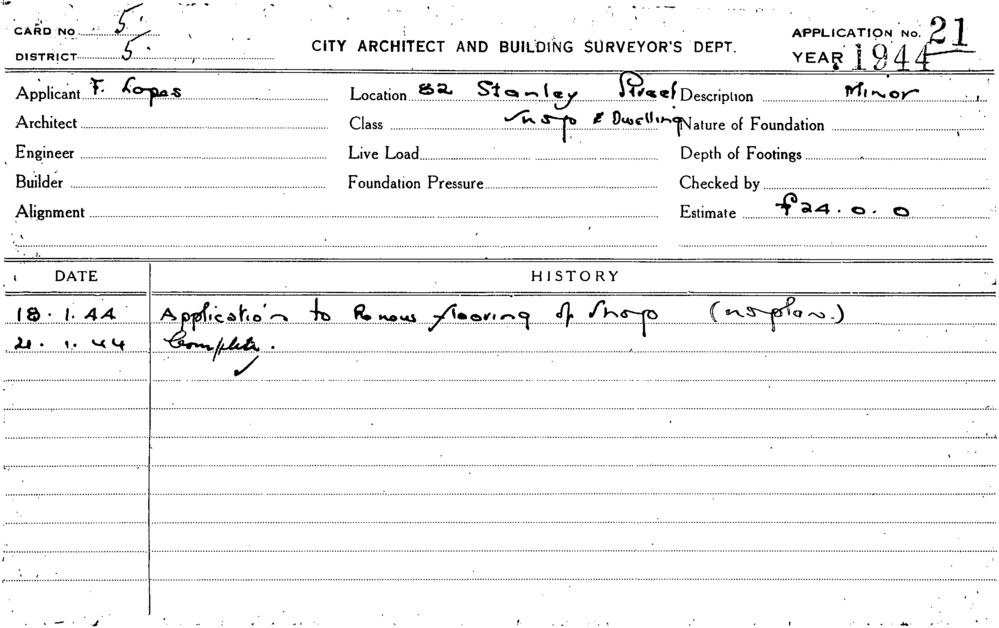 CARD NO 5.
DISTRICT 5.
CITY ARCHITECT AND BUILDING SURVEYOR'S DEPT.
APPLICATION No. 21
YEAR 1944
Applicant F. Lopes Location 82 Stanley Street Description Minor
Architect Class Shop & Dwelling Nature of Foundation
Engineer Live Load Depth of Footings
Builder Foundation Pressure Checked by
Alignment Estimate £24.0.0
DATE HISTORY
18.1.44 Application to Renew flooring of shop (no plan.)
1.44 Complete.